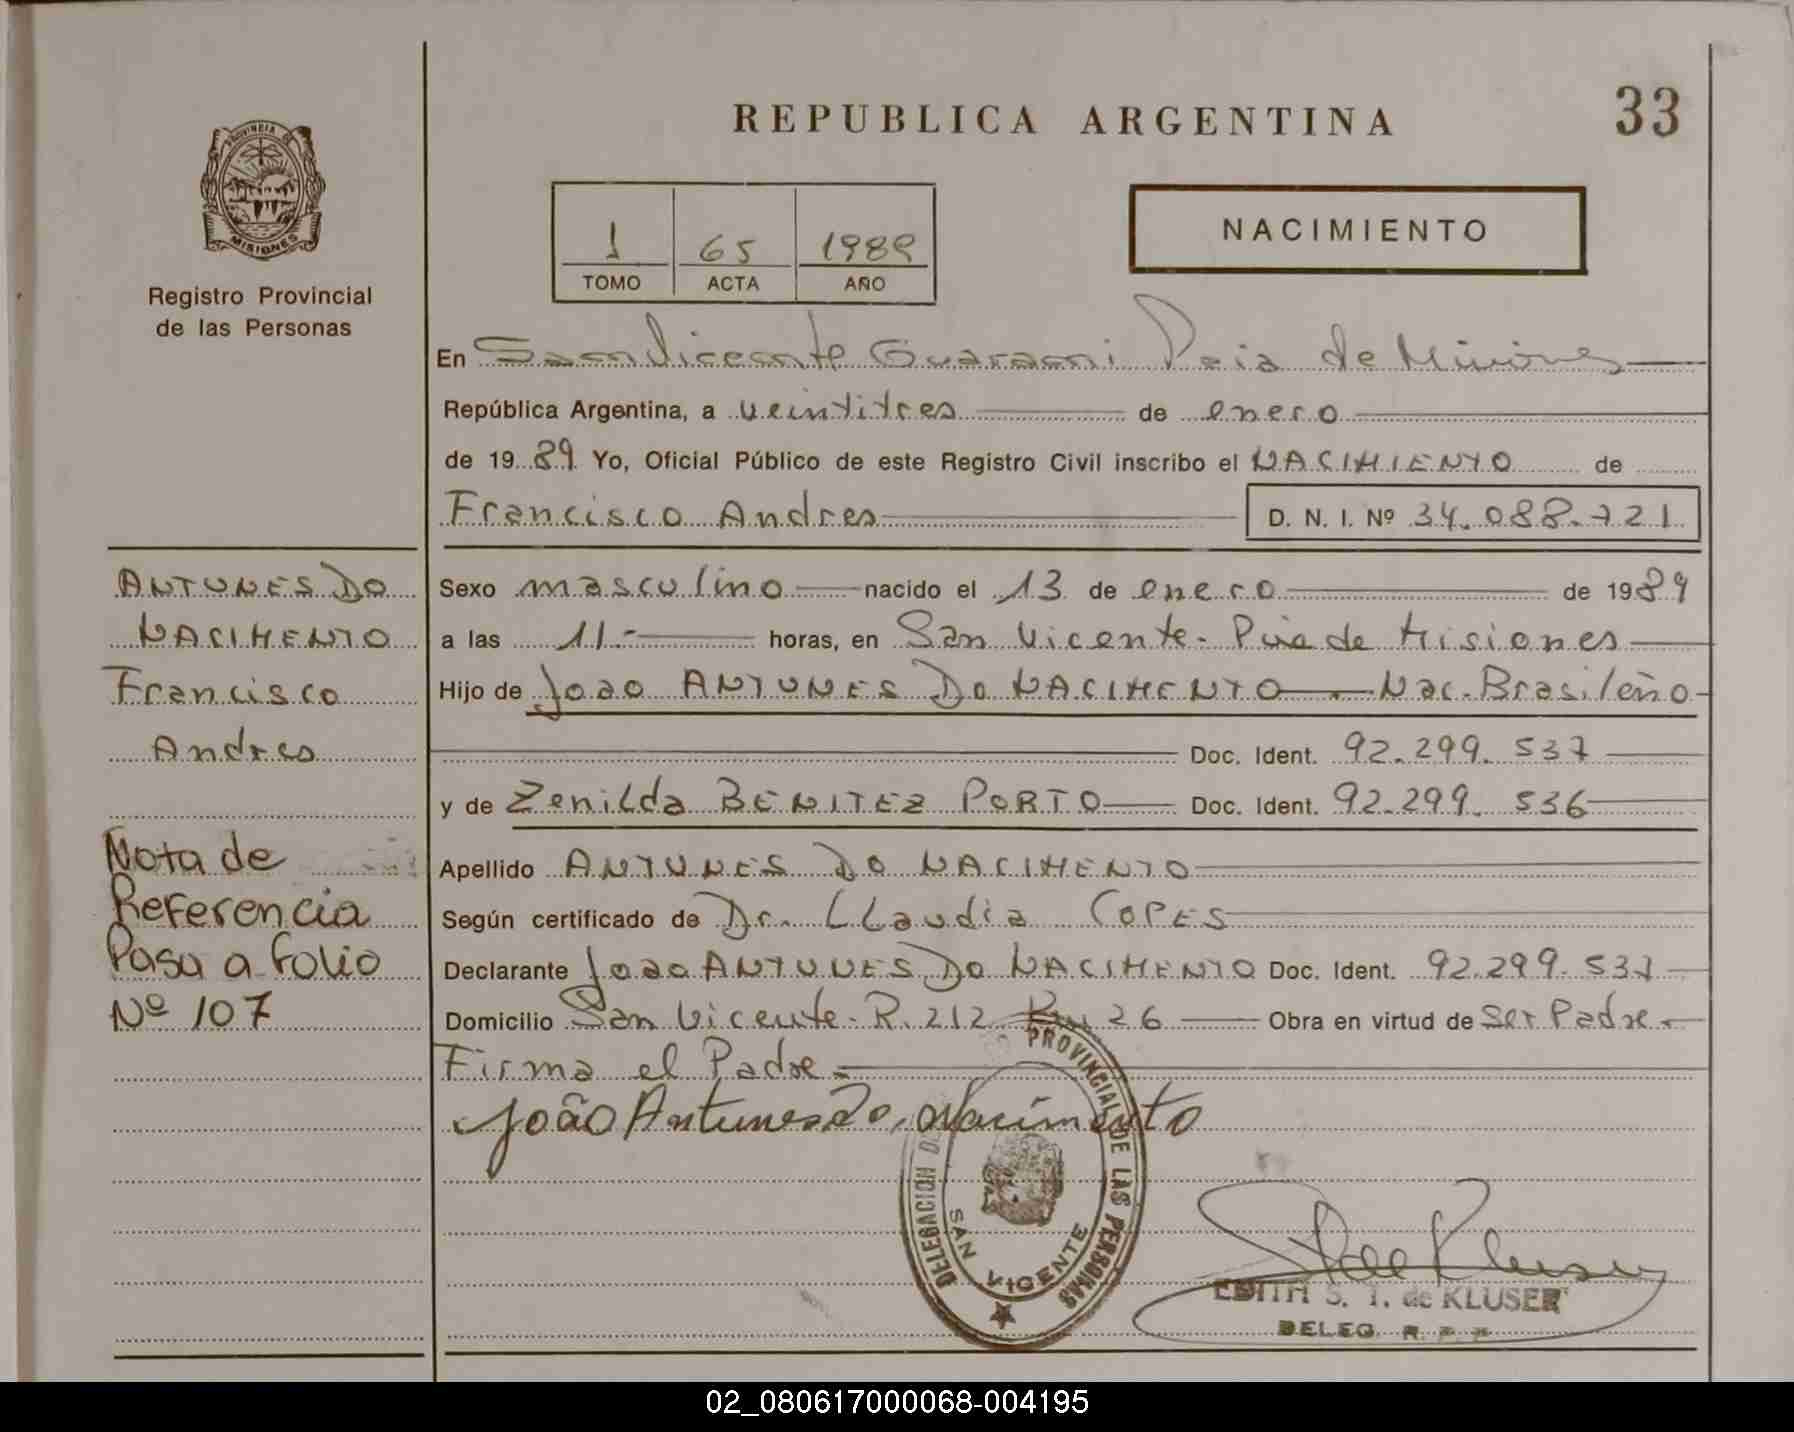 REPUBLICA ARGENTINA
33
PROVINCIA DE
MISIONES
Registro Provincial
de las Personas
1 65 1989
TOMO ACTA AÑO
NACIMIENTO
En San Vicente Guarani Pcia de Misiones
República Argentina, a veintitres de enero
de 1989 Yo, Oficial Público de este Registro Civil inscribo el NACIMIENTO de
Francisco Andres D. N. I. Nº 34.088.721
ANTUNES DO
NACIMENTO
Francisco
Andres
Nota de
Referencia
Pasa a folio
Nº 107
Sexo masculino nacido el 13 de enero de 1989
a las 11.- horas, en San Vicente- Pcia de Misiones
Hijo de Joao ANTUNES DO NACIMENTO - Nac. Brasileño
Doc. Ident. 92.299.537
y de Zenilda BENITEZ PORTO Doc. Ident. 92.299.536
Apellido ANTUNES DO NACIMENTO
Según certificado de Dr. LLaudia COPES
Declarante Joao ANTUNES DO NACIMENTO Doc. Ident. 92.299.537
Domicilio San Vicente- R. 212 Km 26 Obra en virtud de Ser Padre.-
Firma el Padre.-
João Antunes do Nacimento
DELEGACION PROVINCIAL DE LAS PERSONAS
SAN VICENTE
EDITH S. T. de KLUSER
DELEG. R. P. P.
02_080617000068-004195